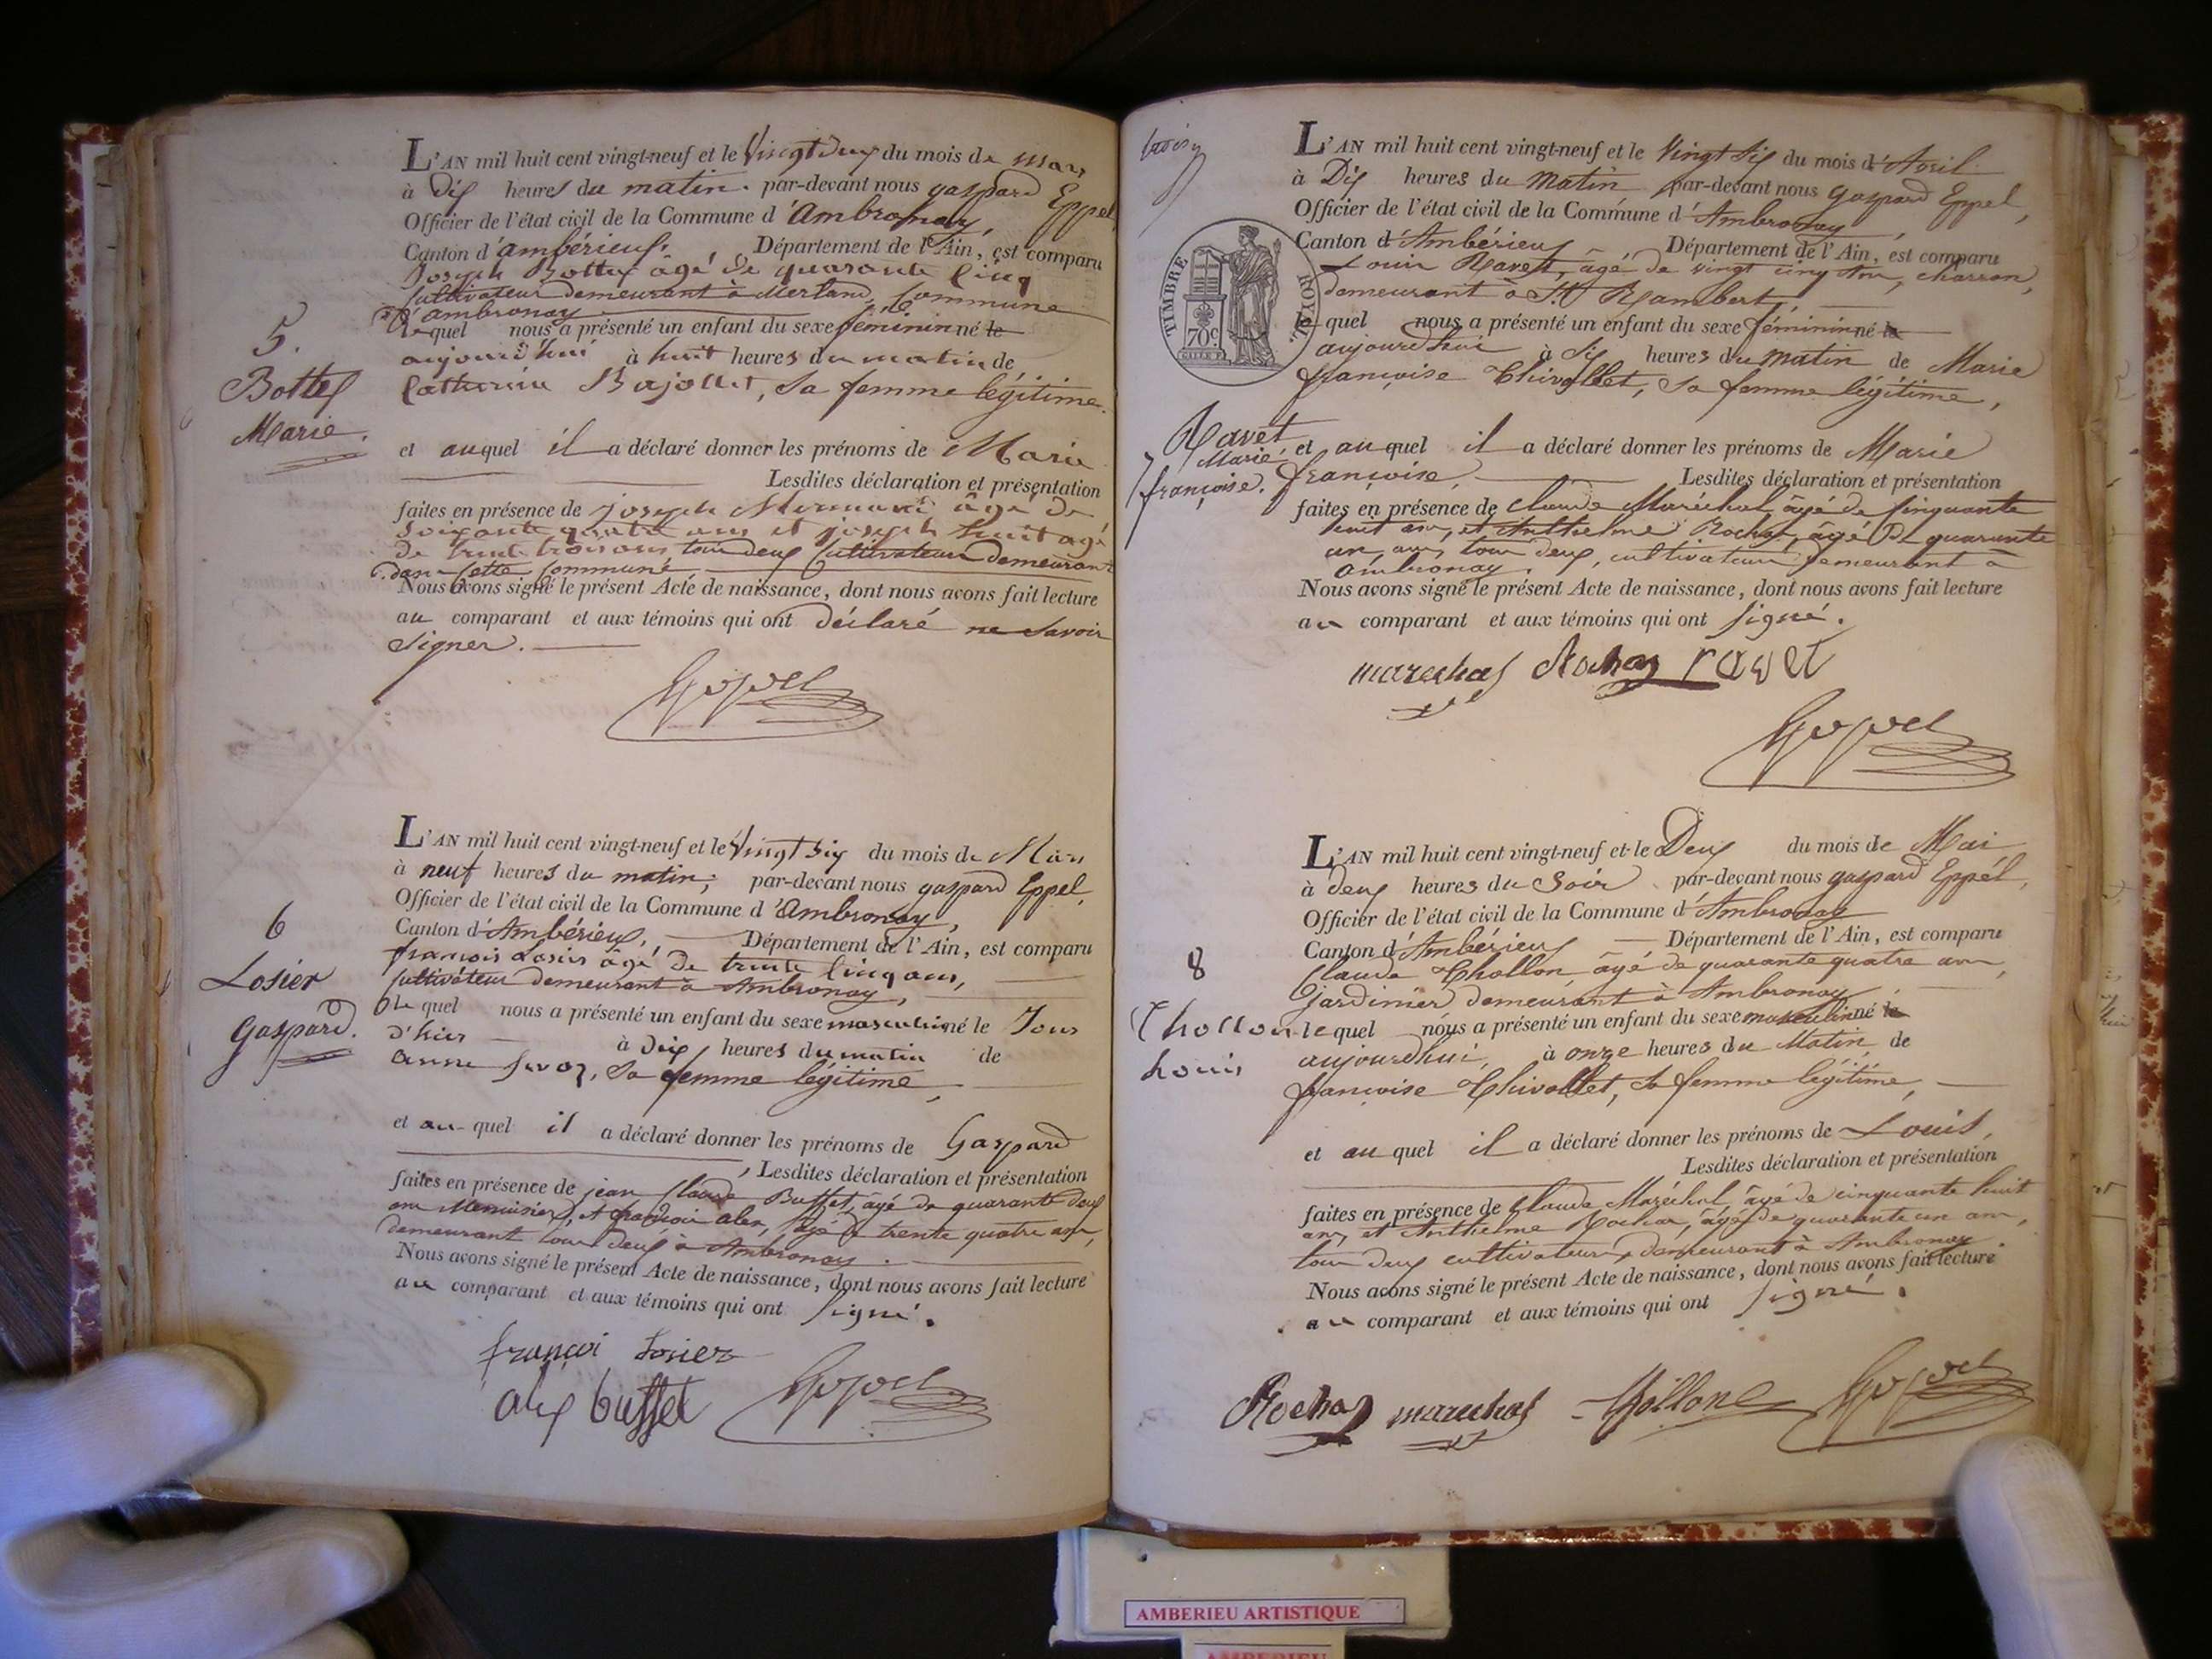 L'AN mil huit cent vingt-neuf et le Vingt deux du mois de mars
à dix heures du matin. par-devant nous gaspard Eppel,
Officier de l'état civil de la Commune d'Ambronay,
Canton d'ambérieux, Département de l'Ain, est comparu
Joseph Bottex âgé de quarante cinq
Cultivateur demeurant à Merland, Commune
d'ambronay
lequel nous a présenté un enfant du sexe féminin né le
aujourd'hui à huit heures du matin de
Catherine Bajollet, sa femme légitime.
5.
Bottex
Marie.
et auquel il a déclaré donner les prénoms de Marie
Lesdites déclaration et présentation
faites en présence de joseph âgé de
soixante quatre ans et joseph huit agé
de trente trois ans, tous deux Cultivateurs demeurant
dans Cette Commune
Nous avons signé le présent Acte de naissance, dont nous avons fait lecture
au comparant et aux témoins qui ont déclaré ne savoir
signer.
Eppel
L'AN mil huit cent vingt-neuf et le Vingt six du mois de Mars
à neuf heures du matin, par-devant nous gaspard Eppel,
Officier de l'état civil de la Commune d'Ambronay,
Canton d'Ambérieux, Département de l'Ain, est comparu
françois Losier agé de trente cinq ans,
Cultivateur demeurant à Ambronay,
lequel nous a présenté un enfant du sexe masculin né le Jour
d'hier à dix heures du matin de
anne, sa femme légitime,
6
Losier
Gaspard.
et auquel il a déclaré donner les prénoms de Gaspard
, Lesdites déclaration et présentation
faites en présence de jean Claude Buffet, âgé de quarante deux
ans Menuisier, et françois alex, âgé de trente quatre ans,
demeurant tous deux à Ambronay.
Nous avons signé le présent Acte de naissance, dont nous avons fait lecture
au comparant et aux témoins qui ont signé.
françoi losier
alex buffet Eppel
L'AN mil huit cent vingt-neuf et le Vingt Six du mois d'Avril
à Dix heures du Matin par-devant nous gaspard Eppel,
Officier de l'état civil de la Commune d'Ambronay,
Canton d'Ambérieux Département de l'Ain, est comparu
Louis Ravet, âgé de vingt cinq ans, charron,
demeurant à St Rambert,
lequel nous a présenté un enfant du sexe féminin né le
aujourd'hui à Six heures du matin de Marie
françoise Chivollet, sa femme légitime,
TIMBRE ROYAL
70c
7
Ravet
Marie
françoise.
et auquel il a déclaré donner les prénoms de Marie
françoise. Lesdites déclaration et présentation
faites en présence de Claude Maréchal, âgé de cinquante
huit ans, et Anthelme Rochas, âgé De quarante
un ans, tous deux, cultivateurs demeurant à
ambronay.
Nous avons signé le présent Acte de naissance, dont nous avons fait lecture
au comparant et aux témoins qui ont signé.
marechal Rochas ravet
Eppel
L'AN mil huit cent vingt-neuf et le Deux du mois de Mai
à deux heures du Soir par-devant nous gaspard Eppel,
Officier de l'état civil de la Commune d'Ambronay
Canton d'Ambérieux Département de l'Ain, est comparu
Claude Chollon, âgé de quarante quatre ans,
jardinier demeurant à Ambronay
lequel nous a présenté un enfant du sexe masculin né le
aujourd'hui, à onze heures du Matin de
françoise Chivollet, sa femme légitime,
8
Chollon
Louis
et auquel il a déclaré donner les prénoms de Louis,
Lesdites déclaration et présentation
faites en présence de Claude Maréchal, âgé de cinquante huit
ans, et Anthelme Rochas, âgé de quarante un ans,
tous deux cultivateurs, demeurant à Ambronay.
Nous avons signé le présent Acte de naissance, dont nous avons fait lecture
au comparant et aux témoins qui ont signé.
Rochas marechal Chollon Eppel
AMBERIEU ARTISTIQUE
AMBERIEU